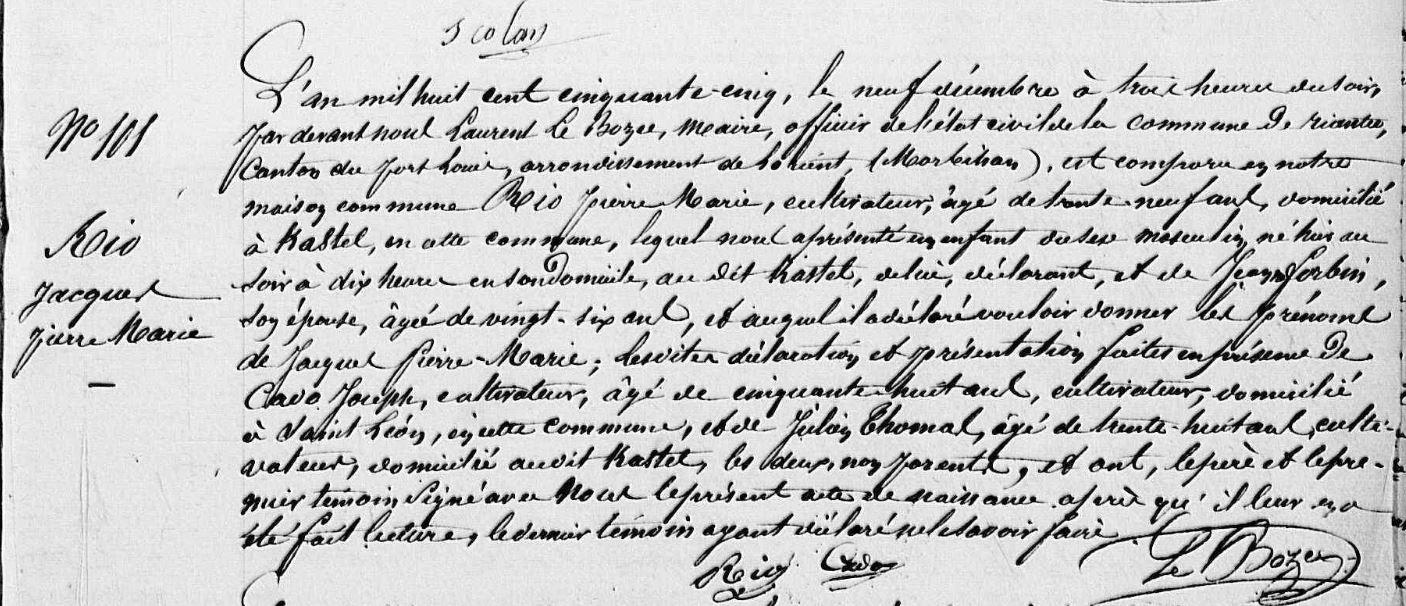 Scolan
L'an mil huit cent cinquante-cinq, le neuf décembre à trois heures du soir,
Nº 101
par devant nous Laurent Le Bozec, Maire, officier de l'état civil de la commune de riantec,
Canton du port Louis, arrondissement de Lorient, (Morbihan), est comparu en notre
maison commune Rio Pierre Marie, cultivateur, âgé de trente-neuf ans, domicilié
Rio
Jacques
Pierre Marie
à Kastel, en cette commune, lequel nous a présenté un enfant du sexe masculin, né hier au
soir à dix heures en son Domicile, au dit Kastel, de lui, déclarant, et de Jeanne Lorbin,
son épouse, âgée de vingt-six ans, et auquel il a déclaré vouloir donner les prénoms
de Jacques Pierre-Marie; lesdites déclaration et présentation faites en présence de
Cado Joseph, cultivateur, âgé de cinquante-huit ans, cultivateur, domicilié
à Saint Léon, en cette commune, et de Julien Thomas, âgé de trente-huit ans, culti-
vateur, domicilié audit Kastel, les deux, non parents, et ont, le père et le pre-
mier témoin signé avec Nous le présent acte de naissance après qu'il leur en a
été fait lecture, le dernier témoin ayant déclaré ne le savoir faire.
Rio Cado Le Bozec